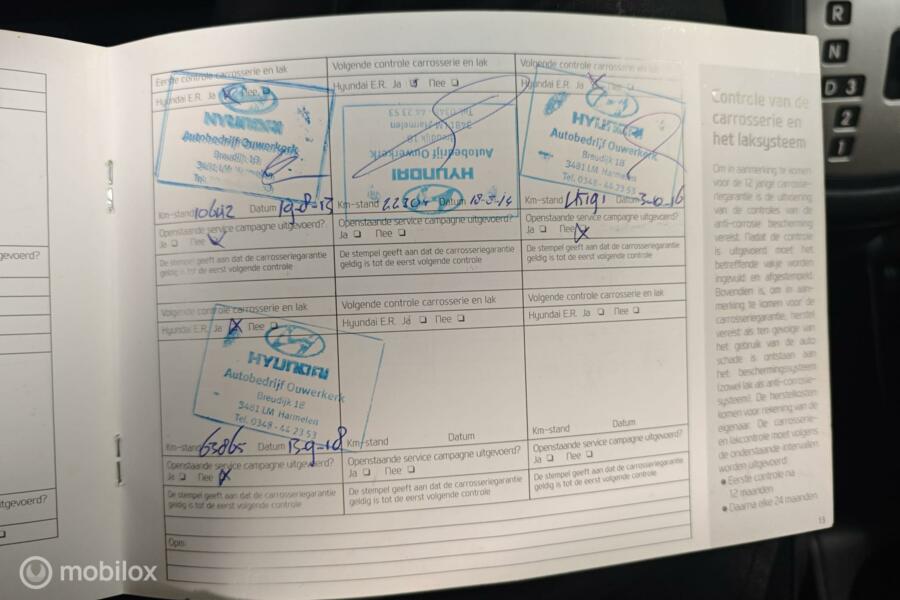 R
N
D 3
2
1
Eerste controle carrosserie en lak
Hyundai E.R. Ja Nee
HYUNDAI
Autobedrijf Ouwerkerk
Breudijk 18
3481 LM
Km-stand 10642 Datum 19-8-13
Openstaande service campagne uitgevoerd?
Ja Nee
De stempel geeft aan dat de carrosseriegarantie
geldig is tot de eerst volgende controle
Volgende controle carrosserie en lak
Hyundai E.R. Ja Nee
HYUNDAI
Autobedrijf Ouwerkerk
Breudijk 18
3481 LM Harmelen
Tel. 0348 - 44 23 53
Km-stand Datum
Openstaande service campagne uitgevoerd?
Ja Nee
De stempel geeft aan dat de carrosseriegarantie
geldig is tot de eerst volgende controle
Volgende controle carrosserie en lak
Hyundai E.R. Ja Nee
HYUNDAI
Autobedrijf Ouwerkerk
Breudijk 18
3481 LM Harmelen
Tel. 0348 - 44 23 53
Km-stand Datum
Openstaande service campagne uitgevoerd?
Ja Nee
De stempel geeft aan dat de carrosseriegarantie
geldig is tot de eerst volgende controle
Volgende controle carrosserie en lak
Hyundai E.R. Ja Nee
HYUNDAI
Autobedrijf Ouwerkerk
Breudijk 18
3481 LM Harmelen
Tel. 0348 - 44 23 53
Km-stand 63865 Datum 13-9-18
Openstaande service campagne uitgevoerd?
Ja Nee
De stempel geeft aan dat de carrosseriegarantie
geldig is tot de eerst volgende controle
Volgende controle carrosserie en lak
Hyundai E.R. Ja Nee
Km-stand Datum
Openstaande service campagne uitgevoerd?
Ja Nee
De stempel geeft aan dat de carrosseriegarantie
geldig is tot de eerst volgende controle
Volgende controle carrosserie en lak
Hyundai E.R. Ja Nee
Km-stand Datum
Openstaande service campagne uitgevoerd?
Ja Nee
De stempel geeft aan dat de carrosseriegarantie
geldig is tot de eerst volgende controle
Opm:
Controle van de
carrosserie en
het laksysteem
Om in aanmerking te komen
voor de 12 jarige carrosse-
riegarantie is de uitvoering
van de controles van de
anti-corrosie bescherming
vereist. Nadat de controle
is uitgevoerd moet het
betreffende vakje worden
ingevuld en afgestempeld.
Bovendien is, om in aan-
merking te komen voor de
carrosseriegarantie, herstel
vereist als ten gevolge van
het gebruik van de auto
schade is ontstaan aan
het beschermingssysteem
(zowel lak als anti-corrosie-
systeem). De herstelkosten
komen voor rekening van de
eigenaar. De carrosserie-
en lakcontrole moet volgens
de onderstaande intervallen
worden uitgevoerd:
● Eerste controle na
12 maanden
● Daarna elke 24 maanden
13
gevoerd?
itgevoerd?
mobilox